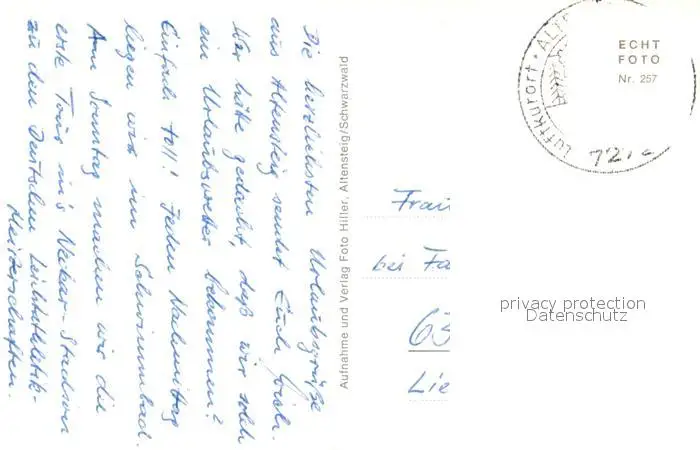 Die herzlichsten Urlaubsgrüße
aus Altensteig sendet Euch
Wer hätte gedacht, daß wir solch
ein Urlaubswetter bekommen?
Einfach toll! Jeden Nachmittag
liegen wir im Schwimmbad.
Am Sonntag machen wir die
erste Tour in's Neckar-Stadion
zu den Deutschen Leichtathletik-
Meisterschaften.
Aufnahme und Verlag Foto Hiller, Altensteig/Schwarzwald
Luftkurort · ALT
72
ECHT
FOTO
Nr. 257
Frau
bei Fa
63
Lie
privacy protection
Datenschutz